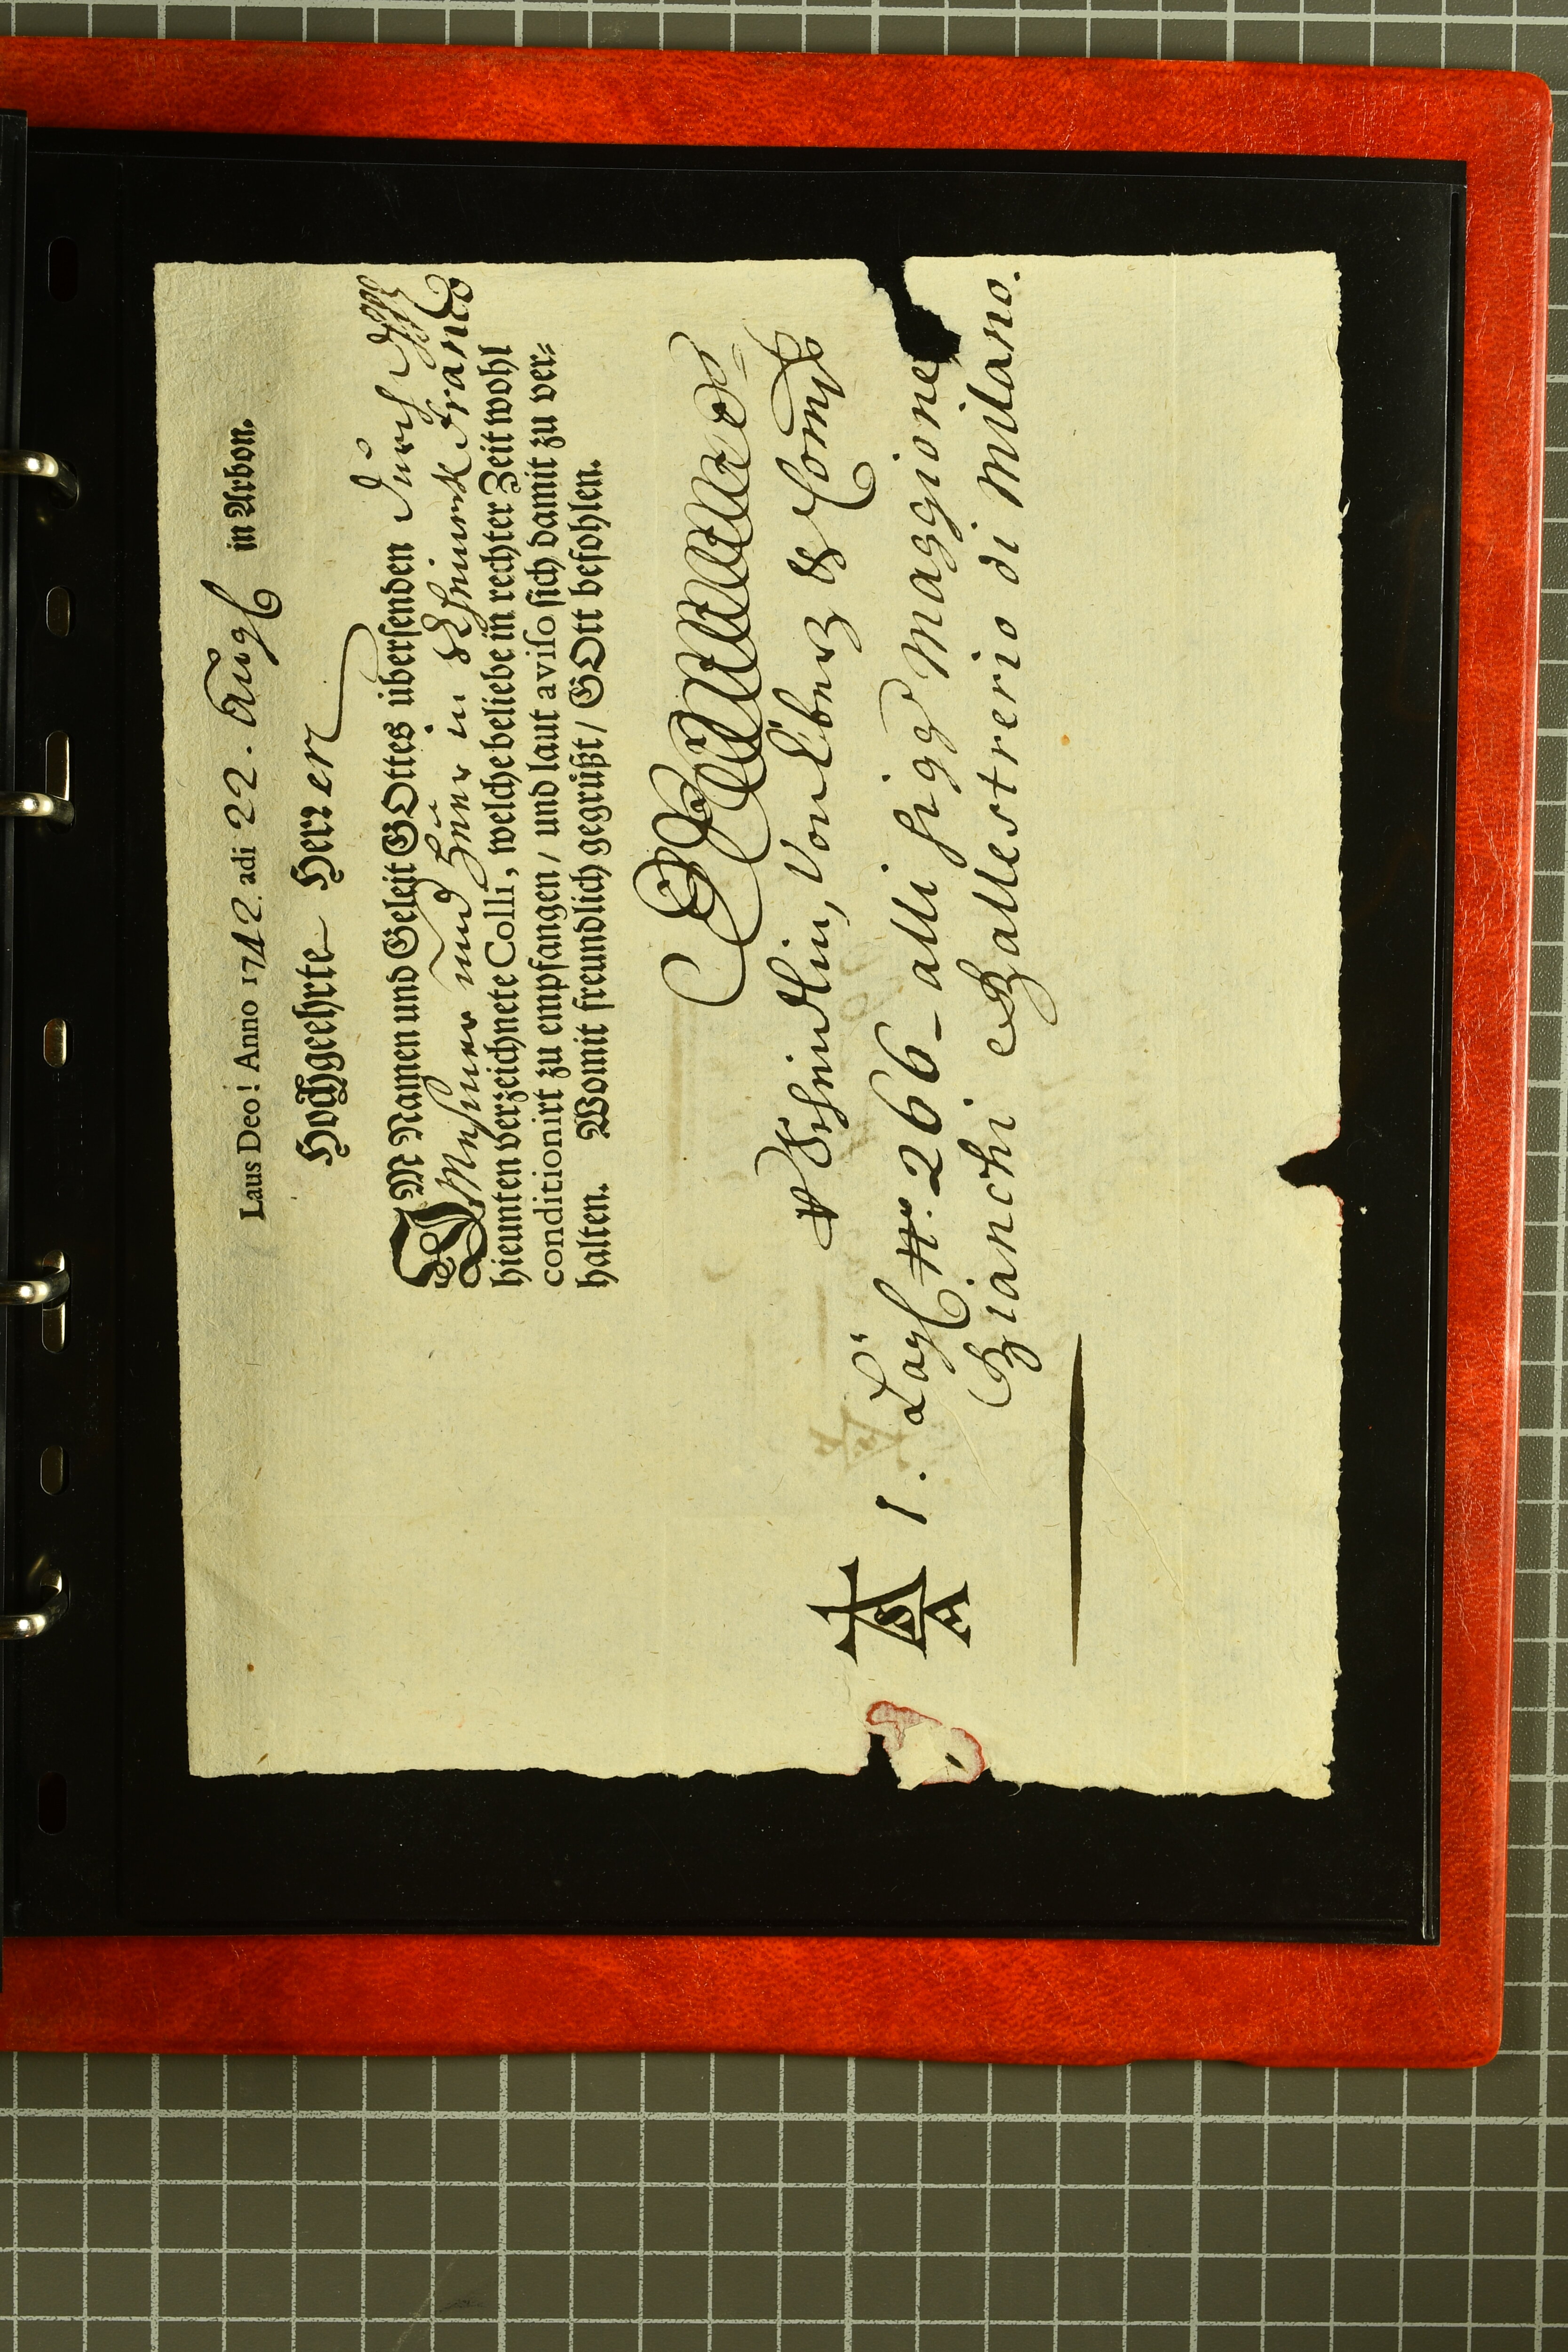 Laus Deo! Anno 1742. adi 22. Augl in Arbon.
Hochgeehrte Herren
IM Namen und Geleit GOttes übersenden durch
Meßmer und in Rheineck Franco
hieunten verzeichnete Colli, welche beliebe in rechter Zeit wohl
conditionirt zu empfangen / und laut aviso sich damit zu ver=
halten. Womit freundlich gegrüßt / GOtt befohlen.
Schindlin, Von &
1. Lägl N.º 266 - alli Sigg.ri Maggione
Bianchi e Ballestrerio di Milano.